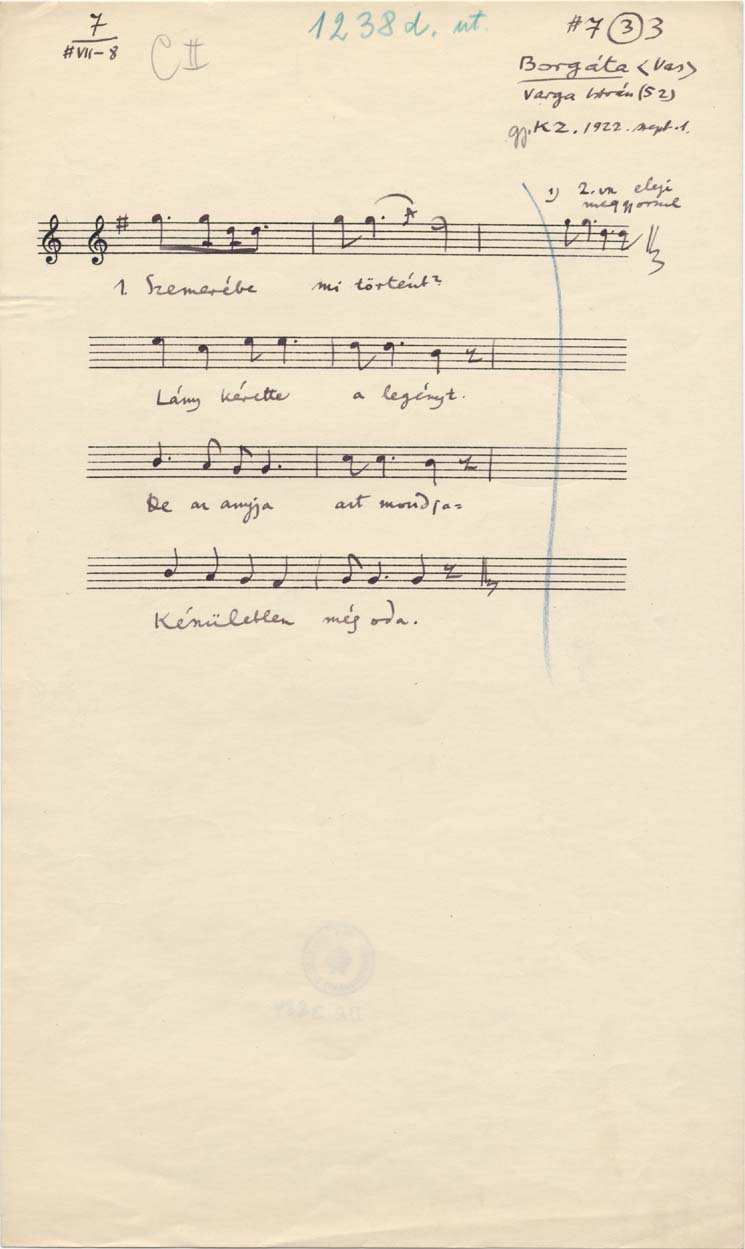 7
#VII-8
C II
1238 d. ut.
#7 (3) 3
Borgáta <Vas>
Varga István (52)
gy. KZ. 1922. sept. 1.
1) 2. vsz eleji
meggyorsul
1. Szemerébe mi történt?
Lány kérette a legényt.
De az anyja azt mondja:
Készületlen még oda.